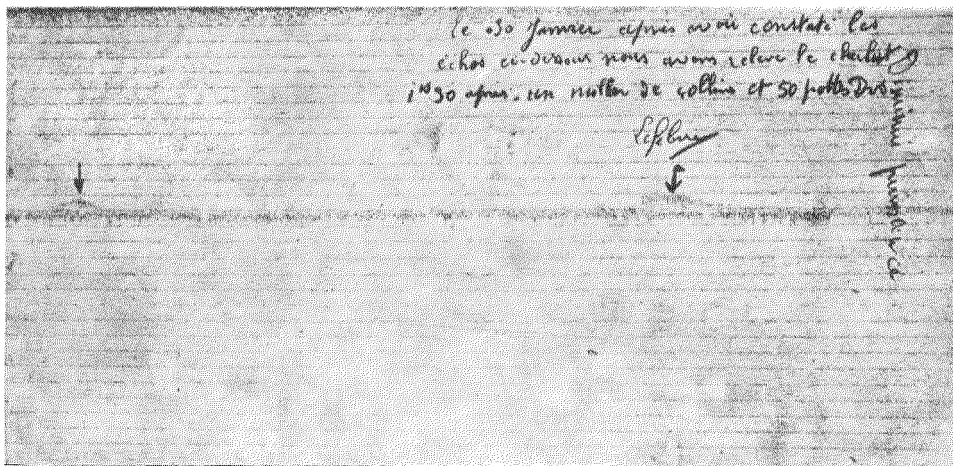 le 30 Janvier après avoir constaté les
échos ci-dessus nous avons relevé le chalut
1h30 après. un millier de collins et 50 paltes Divs
Lefebvre